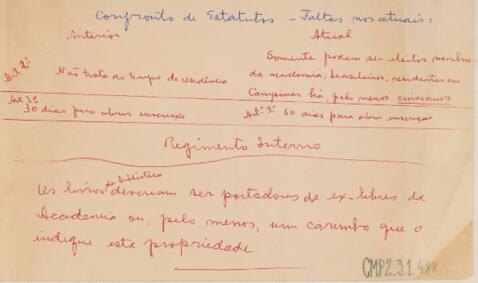 Confronto de Estatutos - Faltas nos atuais:
Anterior
Atual
Art 2º
Não trata do tempo de residência
Somente podem ser eleitos membros
da academia, brasileiros, residentes em
Campinas há, pelo menos, cinco anos
Art 3º
30 dias para abrir inscrição
Artº 3º 60 dias para abrir inscrição
Regimento Interno
Os livros da biblioteca deveriam ser portadores de ex-libres da
Academia ou, pelo menos, um carimbo que o
indique esta propriedade
CMP2.3.1.488